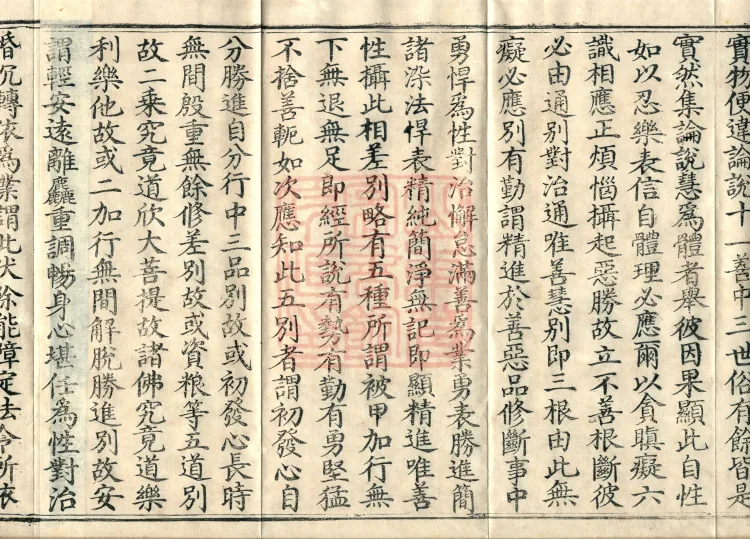 實物便違論說十一善中三世俗有餘皆是
實然集論說慧爲體者舉彼因果顯此自性
如以忍樂表信自體理必應爾以貪瞋癡六
識相應正煩惱攝起惡勝故立不善根斷彼
必由通別對治通唯善慧別即三根由此無
癡必應別有勤謂精進於善惡品修斷事中
勇悍爲性對治懈怠滿善爲業勇表勝進簡
諸染法悍表精純簡淨無記即顯精進唯善
性攝此相差別略有五種所謂被甲加行無
下無退無足即經所說有勢有勤有勇堅猛
不捨善軛如次應知此五別者謂初發心自
分勝進自分行中三品別故或初發心長時
無間殷重無餘修差別故或資粮等五道別
故二乘究竟道欣大菩提故諸佛究竟道樂
利樂他故或二加行無間解脫勝進別故安
謂輕安遠離麤重調暢身心堪任爲性對治
惛沉轉依爲業謂此伏除能障定法令所依